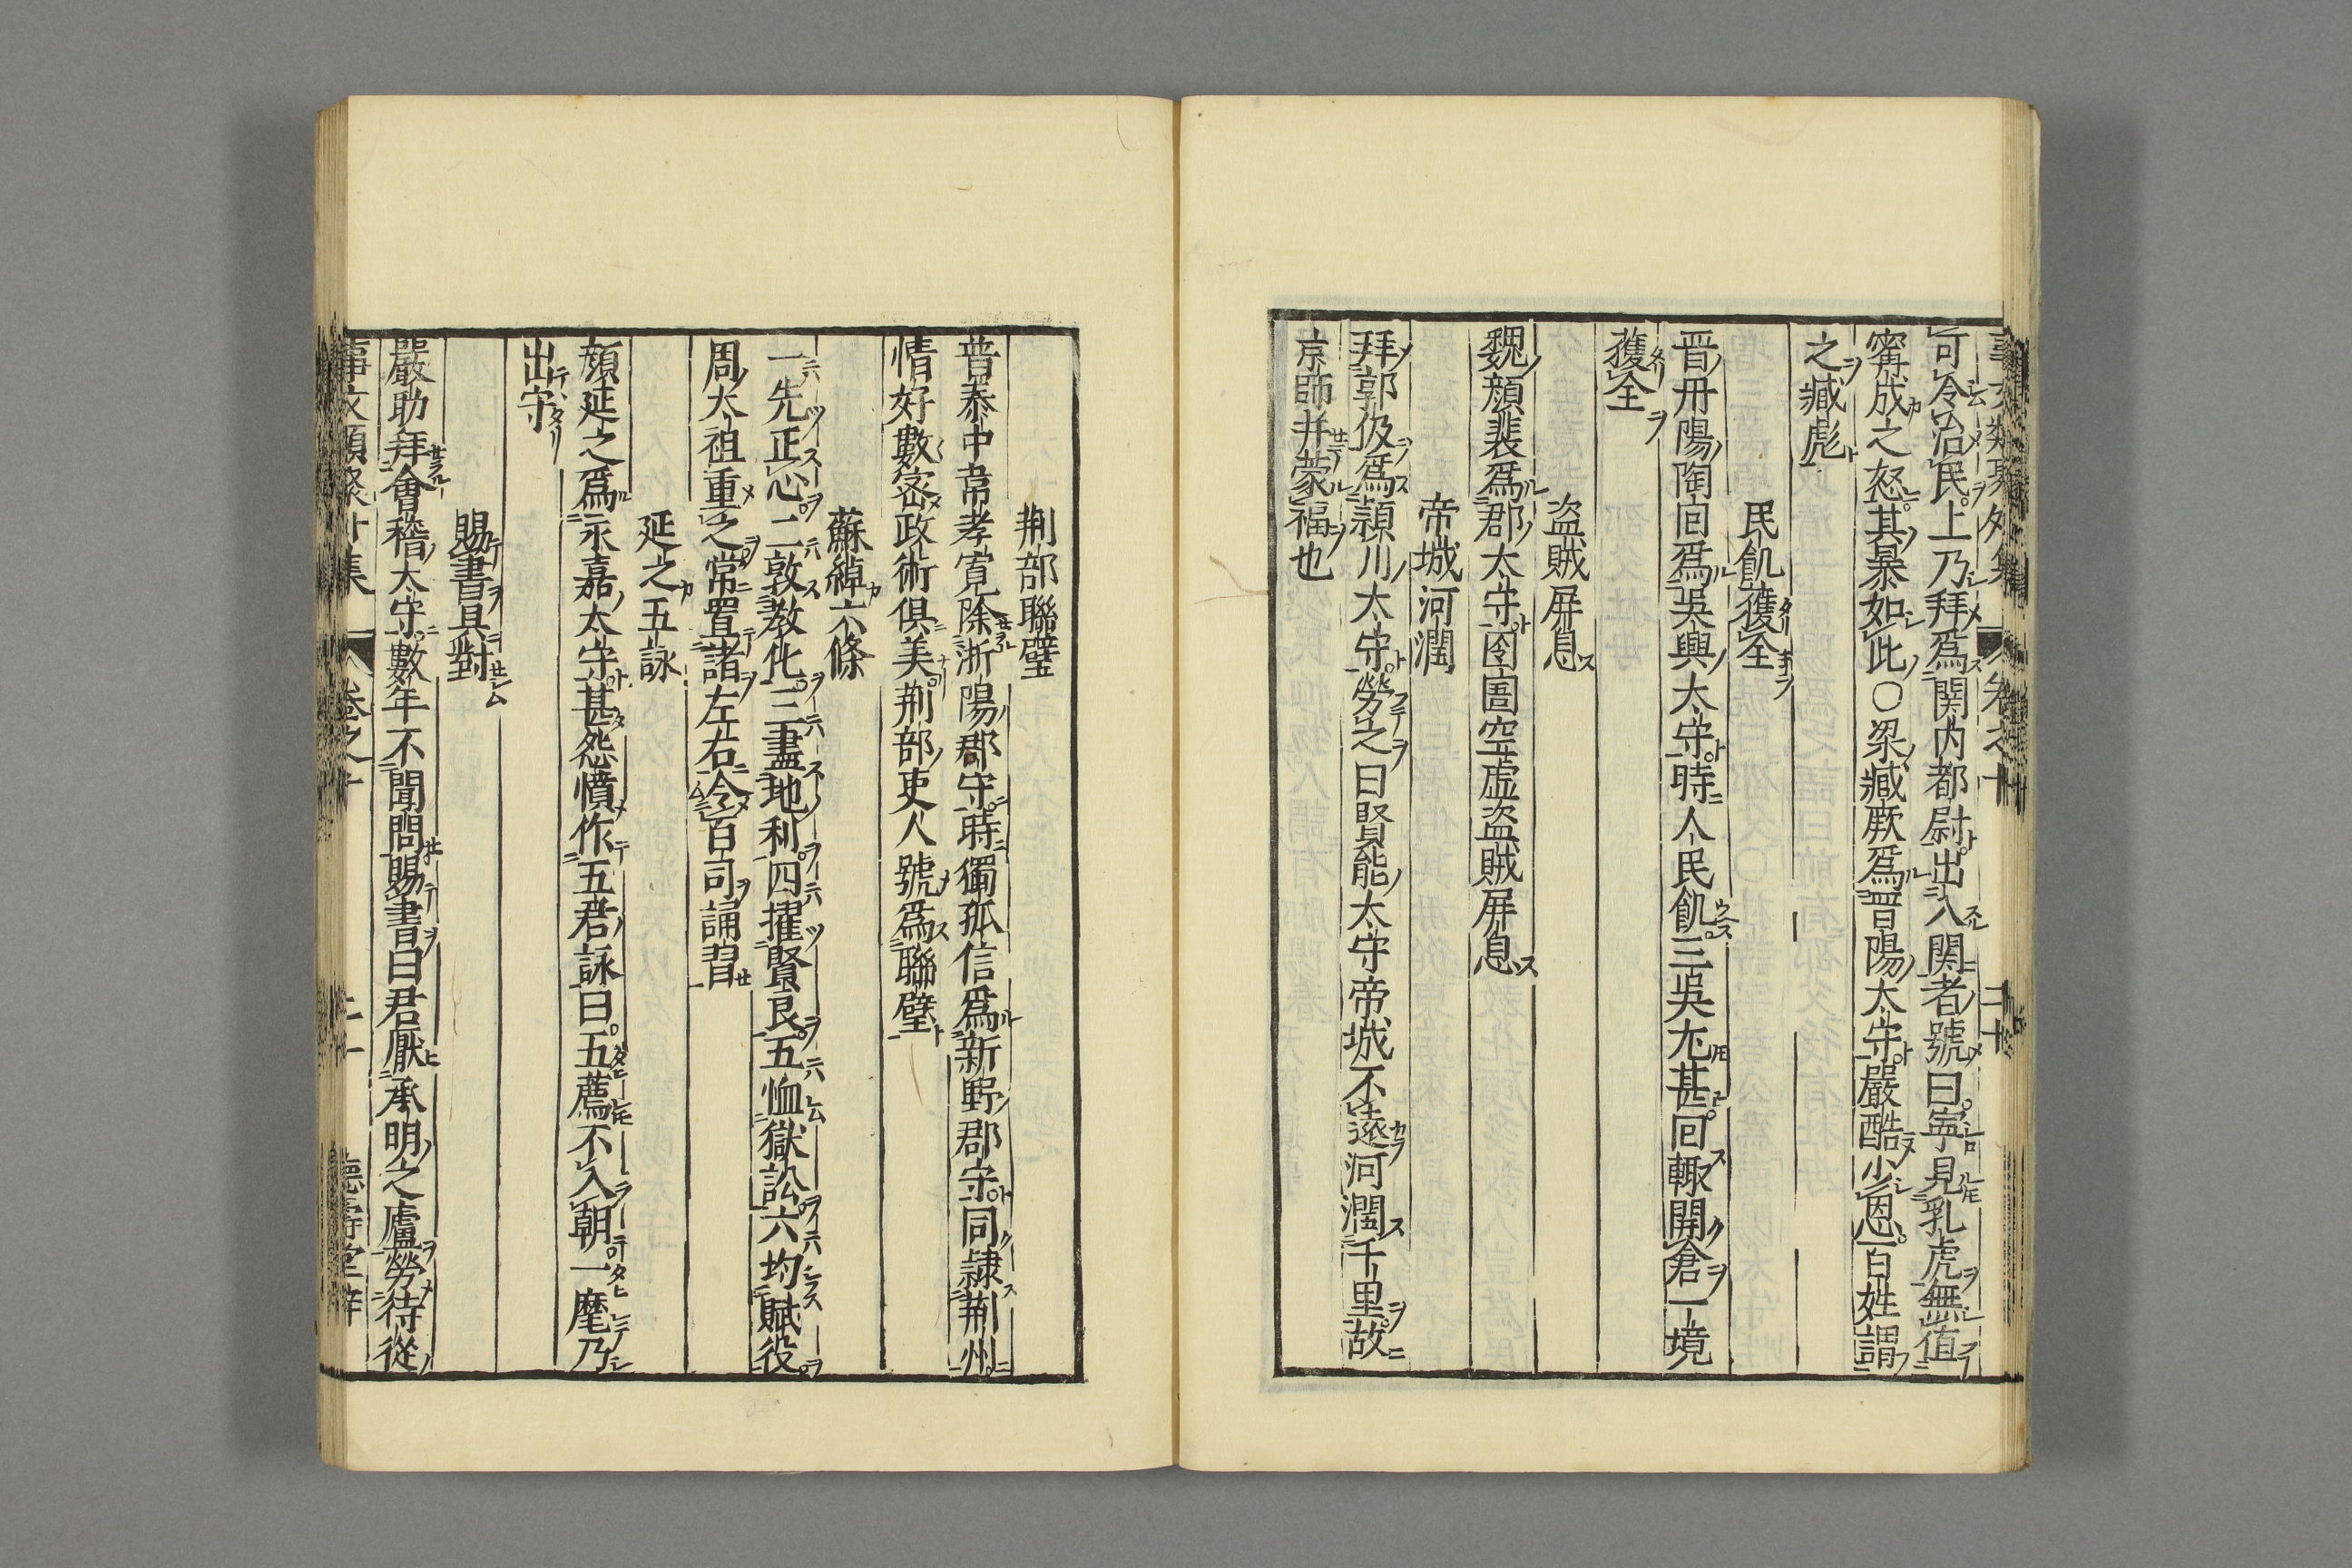 可令治民上乃拜爲関内都尉出入関者號曰寧見乳虎無値
寗成之怒其暴如此○梁臧厥爲晋陽太守嚴酷少恩百姓謂
之臧彪
民飢獲全
晋丹陽陶回爲吳興太守時人民飢三吳尤甚回輙開倉一境
獲全
盗賊屏息
魏顔裴爲郡太守囹圄空虚盗賊屏息
帝城河潤
拜郭伋爲頴川太守勞之曰賢能太守帝城不遠河潤千里故
京師并蒙福也
荆部聯璧
普泰中韋孝寛除淅陽郡守時獨孤信爲新野郡守同隷荆州
情好數宻政術俱美荆部吏人號爲聯璧
蘇綽六條
一先正心二敦敎化三盡地利四擢賢良五恤獄訟六均賦役
周太祖重之常置諸左右令百司誦習
延之五詠
顔延之爲永嘉太守甚怨憤作五君詠曰五薦不入朝一麾乃
出守
賜書具對
嚴助拜會稽太守數年不聞問賜書曰君厭承明之廬勞待從
事文類聚外集 卷之十 德壽堂梓